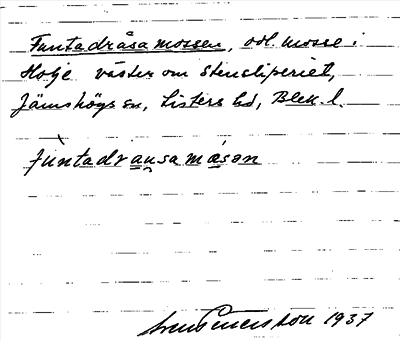 Funtadråsamossen, odl. mosse i
Holje väster om Stensliperiet,
Jämshögs sn, Listers hd, Blek. l.
fùntadrạu̯samǻsən
1937